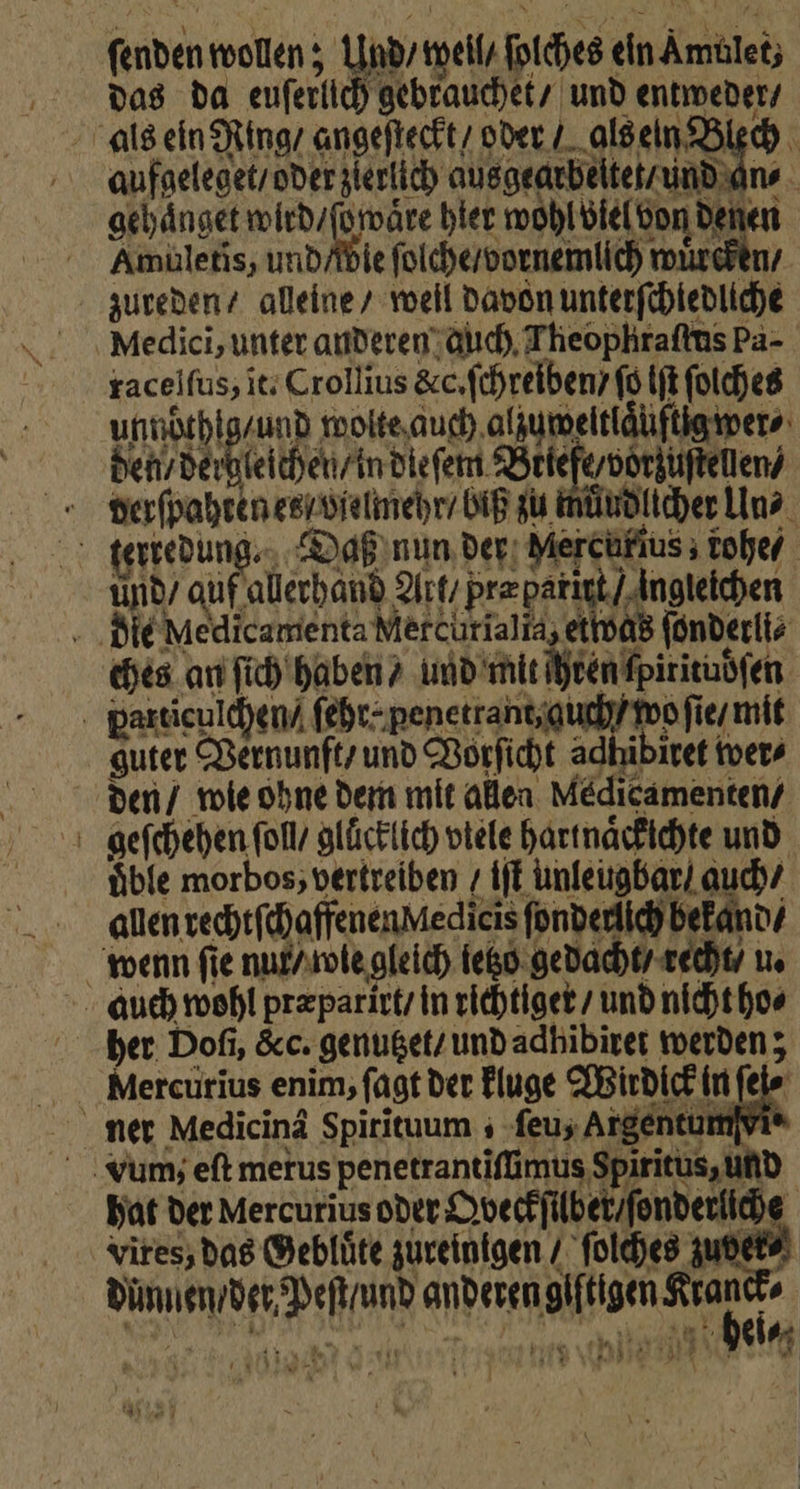 ſenden wollen; Und/ weil/ ſolches ein Amulet,
das da euſerlich gebrauchet/ und entweder/
als ein Ring/ angeſteckt/ oder / als ein Blech
aufgeleget/ oder zierlich ausgearbeitet/ und an⸗
gehaͤnget wird/ ſo waͤre hier wohl viel von denen
Amuletis, und/ wie ſolche/ vornemlich wuͤrcken/
zureden / alleine / weil davon unterſchiedliche
Medici, unter anderen auch, Theophraſtus Pa-
racelſus, it. Crollius &c. ſchreiben/ ſo iſt ſolches
unnoͤthig/ und wolte auch alzuweitlaͤuftig wer⸗
den/ dergleichen/ in dieſem Briefe/ vorzuſtellen/
verſpahren es/ vielmehr/ biß zu muͤndlicher Un⸗
terredung. Daß nun der Mercurius, rohe/
und/ auf allerhand Art/ præparirt / ingleichen
die Medicamenta Mercurialia, etwas ſonderli⸗
ches an ſich haben / und mit ihren ſpirituoͤſen
particulchen/ ſehr-penetrant, auch/ wo ſie/ mit
guter Vernunft/ und Vorſicht adhibiret wer⸗
den / wie ohne dem mit allen Medicamenten/
geſchehen ſoll/ gluͤcklich viele hartnaͤckichte und
uͤble morbos, vertreiben / iſt unleugbar/ auch/
allen rechtſchaffenen Medicis ſonderlich bekand/
wenn ſie nur/ wie gleich ietzo gedacht/ recht/ u.
auch wohl præparirt/ in richtiger / und nicht ho⸗
her Doſi, &c. genutzet/ und adhibiret werden;
Mercurius enim, ſagt der kluge Wirdick in ſei⸗
ner Medicinâ Spirituum , ſeu, Argentum vi⸗
vum, eſt merus penetrantiſſimus Spiritus, und
hat der Mercurius oder Qveckſilber/ ſonderliche
vires, das Gebluͤte zureinigen / ſolches zuver⸗
duͤnnen/ der, Peſt/ und anderen giftigen Kranck⸗
hei⸗